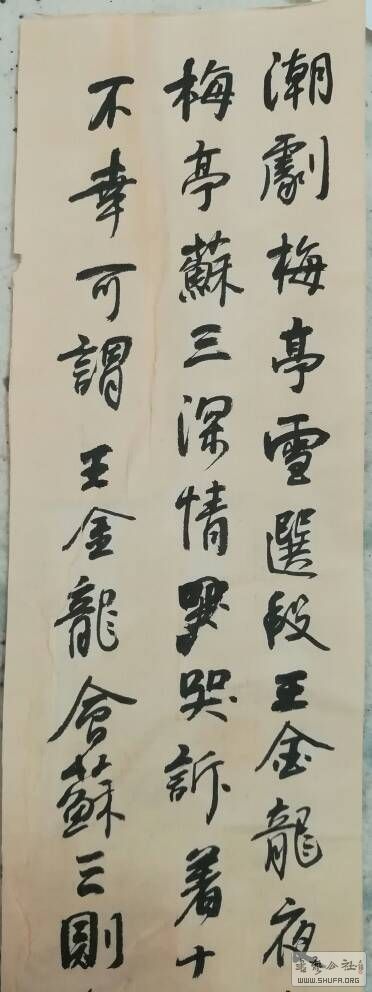 潮劇梅亭雪選段王金龍夜
梅亭蘇三深情哭訴着十
不幸可謂王金龍會蘇三圓
WWW.SHUFA.ORG